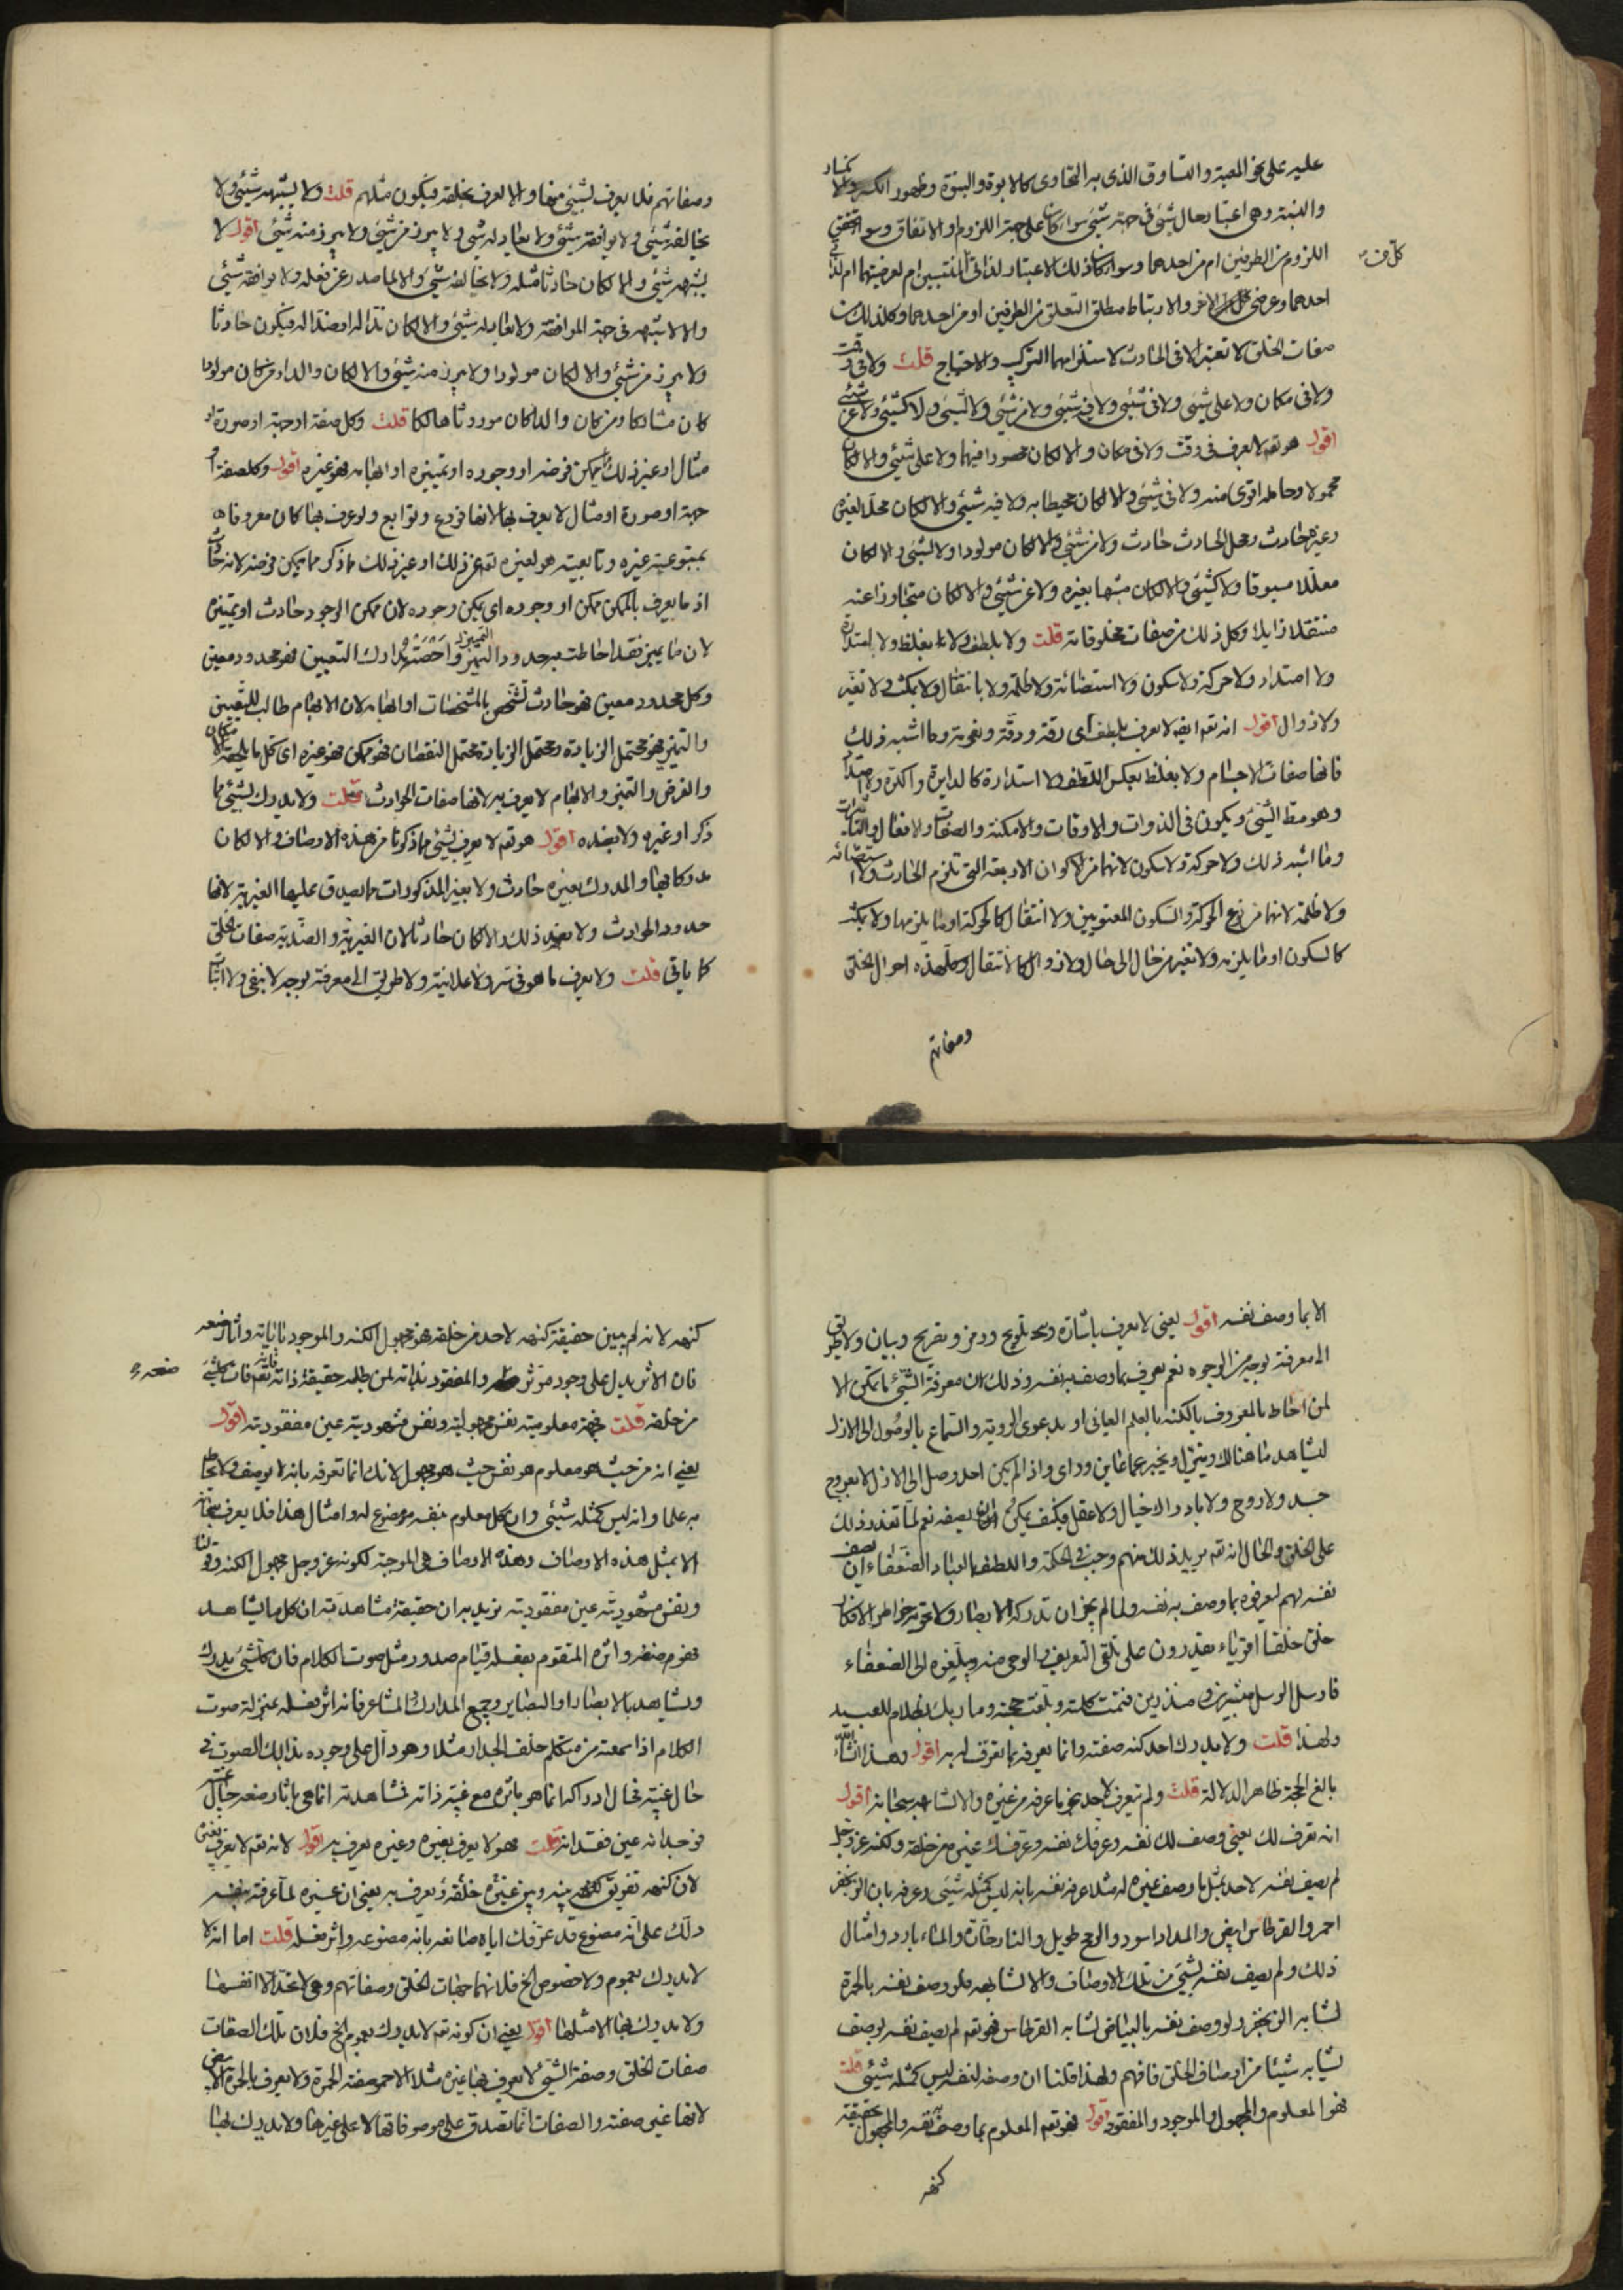 عليه على نحو المعية والتساوق الذى به التحاوى كالابوة والبنوة وظهور الكسر والانكسار
والنسبة وهى اعتبار حال شئ فى جهة شئ سواء كان على جهة اللزوم او الاتفاق وسواء تحقق
اللزوم من الطرفين ام من احدهما وسواء كان ذلك الاعتبار لذاتى المنتسبين ام لعرضيتهما ام لذاتى
كل ف
احدهما وعرضى الاخر والارتباط مطلق التعلق من الطرفين او من احدهما وكل ذلك من
صفات الخلق لا تعتبر الا فى الحادث لاستلزامها التركيب والاحتياج قلت ولا فى وقت
ولا فى مكان ولا على شئ ولا فى شئ ولا فيه شئ ولا من شئ ولا لشئ ولا كشئ ولا عن شئ
اقول هو تعم لا يعرف فى وقت ولا فى مكان والا لكان محصورا فيهما ولا على شئ والا لكان
محمولا وحامله اقوى منه ولا فى شئ والا لكان محيطا به ولا فيه شئ والا لكان محلا لغيره
وغيره حادث ومحل الحادث حادث ولا من شئ والا لكان مولودا ولا لشئ والا لكان
معللا مسبوقا ولا كشئ والا لكان مشبها بغيره ولا عن شئ والا لكان متجاوزا عنه
منتقلا زايلا وكل ذلك من صفات مخلوقاته قلت ولا بلطف ولا بغلظ ولا استدارة
ولا امتداد ولا حركة ولا سكون ولا استضائة ولا ظلمة ولا بانتقال ولا بمكث ولا تغير
ولا زوال اقول انه تعم ايضا لا يعرف بلطف اى رقة ودقة ونعومة وما اشبه ذلك
فانها صفات الاجسام ولا بغلظ بعكس اللطف ولا استدارة كالدايرة والكرة ولا امتداد
وهو مط الشئ ويكون فى الذوات والاوقات والامكنة والصفات والافعال والتأثيرات
وما اشبه ذلك ولا حركة ولا سكون لانهما من الاكوان الاربعة التى تلزم الحادث ولا استضائة
ولا ظلمة لانهما من نوع الحركة والسكون المعنويين ولا انتقال كالحركة او ما يلزمها ولا بمكث
كالسكون او ما يلزمه ولا تغير من حال الى حال ولا زوال كالانتقال وكل هذه احوال الخلق
وصفاتهم
وصفاتهم فلا يعرف بشئ منها والا لعرف بخلقه فيكون مثلهم قلت ولا يشبهه شئ ولا
يخالفه شئ ولا يوافقه شئ ولا يعادله شئ ولا يبرز من شئ ولا يبرز منه شئ اقول لا
يشبهه شئ والا لكان حادثا مثله ولا يخالفه شئ والا لما صدر عن فعله ولا يوافقه شئ
والا لاشبهه فى جهة الموافقة ولا يعادله شئ والا لكان ندا له او ضدا له فيكون حادثا
ولا يبرز من شئ والا لكان مولودا ولا يبرز منه شئ والا لكان والدا ومن كان مولودا
كان مشاركا ومن كان والدا كان موروثا هالكا قلت وكل صفة او جهة او صورة او
مثال او غير ذلك مما يمكن فرضه او وجوده او تمييزه او ابهامه فهو غيره اقول وكل صفة او
جهة او صورة او مثال لا يعرف بها لانها فروع وتوابع ولو عرف بها كان معروفا
بمتبوعية غيره وتابعيته هو لغيره تعم عن ذلك او غير ذلك مما ذكر مما يمكن فرضه لانه حادث
اذ ما يعرف بالممكن ممكن او وجوده اى يمكن وجوده لان ممكن الوجود حادث او تمييزه
لان ما يميز فقد احاطت به حدود التميز واحصته مدارك التعيين فهو محدود معين
التمييز
وكل محدود معين فهو حادث تشخص بالمشخصات او ابهامه لان الابهام طالب للتعيين
والتميز فهو محتمل الزيادة ومحتمل الزيادة محتمل النقصان فهو ممكن فهو غيره اى كل ما يلحقه الامكان
والفرض والتميز والابهام لا يعرف به لانها صفات الحوادث قلت ولا يدرك بشئ مما
ذكر او غيره ولا بضده اقول هو تعم لا يعرف بشئ مما ذكرنا من هذه الاوصاف والا لكان
مدركا بها والمدرك بغيره حادث ولا بغير المذكورات مما يصدق عليها الغيرية لانها
حدود الحوادث ولا بضد ذلك والا لكان حادثا لان الغيرية والضدية صفات الخلق
كما ياتى قلت ولا يعرف ما هو فى سر ولا علانية ولا طريق الى معرفته بوجه لا بنفى ولا اثبات
الا بما وصف نفسه اقول يعنى لا يعرف باشارة وتلويح ورمز وتصريح وبيان ولا طريق
الى معرفته بوجه من الوجوه نعم يعرف بما وصف به نفسه وذلك لان معرفة الشئ ما تمكن الا
لمن احاط بالمعروف بالكنه بالعلم العيانى او بدعوى الروية والسماع بالوصول الى الازل
ليشاهد ما هنالك وينزل ويخبر عما عاين وراى واذا لم يكن احد وصل الى الازل لا بعروج
جسد ولا روح ولا بادراك خيال ولا عقل فكيف يمكن ان يصفه نعم لما تعذر ذلك
على الخلق والحال انه تعم يريد ذلك منهم وجب فى الحكمة واللطف بالعباد الضعفاء ان يصف
نفسه لهم ليعرفوه بما وصف به نفسه ولما لم يجز ان تدركه الابصار ولا تحويه خواطر الافكار
خلق خلقا اقوياء يقدرون على تلقى التعريف والوحى منه ويبلغوه الى الضعفاء
فارسل الرسل مبشرين ومنذرين فتمت كلمته وبلغت حجته وما ربك بظلام للعبيد
ولهذا قلت ولا يدرك احد كنه صفته وانما يعرفه بما تعرف له به اقول وهذا انشاء الله
بالغ الحجة ظاهر الدلالة قلت ولم تعرف لاحد بنحو ما عرفه من غيره والا لشابهه سبحانه اقول
انه تعرف لك يعنى وصف لك نفسه وعرفك نفسه وعرفك غيره من خلقه ولكنه عز وجل
لم يصف نفسه لاحد بمثل ما وصف غيره له مثلا عرفه نفسه بانه ليس كمثله شئ وعرفه بان الزنجفر
احمر والقرطاس ابيض والمداد اسود والرمح طويل والنار حارة والماء بارد وامثال
ذلك ولم يصف نفسه بشئ من تلك الاوصاف والا لشابهه فلو وصف نفسه بالحمرة
لشابه الزنجفر ولو وصف نفسه بالبياض لشابه القرطاس فهو تعم لم يصف نفسه بوصف
يشابه شيئا من اوصاف الخلق فافهم ولهذا قلنا ان وصفه لنفسه ليس كمثله شئ قلت
فهو المعلوم والمجهول والموجود والمفقود اقول فهو تعم المعلوم بما وصف به نفسه والمجهول بحقيقة
كنهه
كنهه لانه لم يبين حقيقة كنهه لاحد من خلقه فهو مجهول الكنه والموجود باياته واثار صنعه
فان الاثر يدل على وجود مؤثر والمفقود بذاته لمن طلب حقيقة ذاته
صنعه
من خلقه قلت فجهة معلوميته نفس مجهوليته ونفس مشهوديته عين مفقوديته اقول
يعنى انه من حيث هو معلوم هو نفس حيث هو مجهول لانك انما تعرفه بانه لا يوصف ولا يحاط
به علما وانه ليس كمثله شئ وان كل معلوم بنفسه مصنوع له وامثال هذا فلا يعرف سبحانه
الا بمثل هذه الاوصاف وهذه الاوصاف هى الموجبة لكونه عز وجل مجهول الكنه وقولنا
ونفس مشهوديته عين مفقوديته نريد به ان حقيقة مشاهدته ان كل ما يشاهد
فهو من صنعه واثره المتقوم بفعله قيام صدور مثل صوت الكلام فان كل شئ يدرك
ويشاهد بالابصار او البصاير وجميع المدارك والمشاعر فانه اثر فعله بمنزلة صوت
الكلام اذا سمعته من متكلم خلف الجدار مثلا وهو دال على وجوده بذلك الصوت فى
حال غيبته فحال ادراكه انما هو باثره مع غيبة ذاته فمشاهدته انما هى باثار صنعه حال غيبته
فوجدانه عين فقدانه قلت فهو لا يعرف بغيره وغيره يعرف به اقول لانه تعم لا يعرف بغيره
لان كنهه تفريق بينه وبين خلقه وغيره يعرف به يعنى ان غيره لما عرفته بنفسه
دلك على انه مصنوع قد عرفك اياه صانعه بانه مصنوعه واثر فعله قلت اما انه لا
لا يدرك بعموم ولا خصوص الخ فلانها جهات الخلق وصفاتهم وهى لا تحد الا انفسها
ولا يدرك بها الا مثلها اقول يعنى ان كونه تعم لا يدرك بعموم الخ فلان تلك الصفات
صفات الخلق وصفة الشئ لا يعرف بها غيره مثلا الاحمر صفته الحمرة ولا يعرف بالحمرة الابيض
لانها غير صفته والصفات انما تصدق على موصوفاتها لا على غيرها ولا يدرك بها